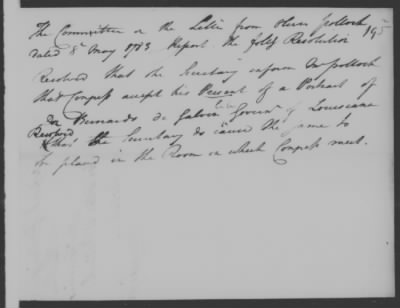 The Committee on the Letter from Oliver Pollock 195
dated 8th May 1783 Report the follg Resolution
Resolved that the Secretary inform Mr Pollock
that Congress accept his Present of a Portrait of
Don Bernardo de Galvez late Governr of Louisiana
Resolved
that the Secretary do cause the same to
be placed in the Room in which Congress meet.